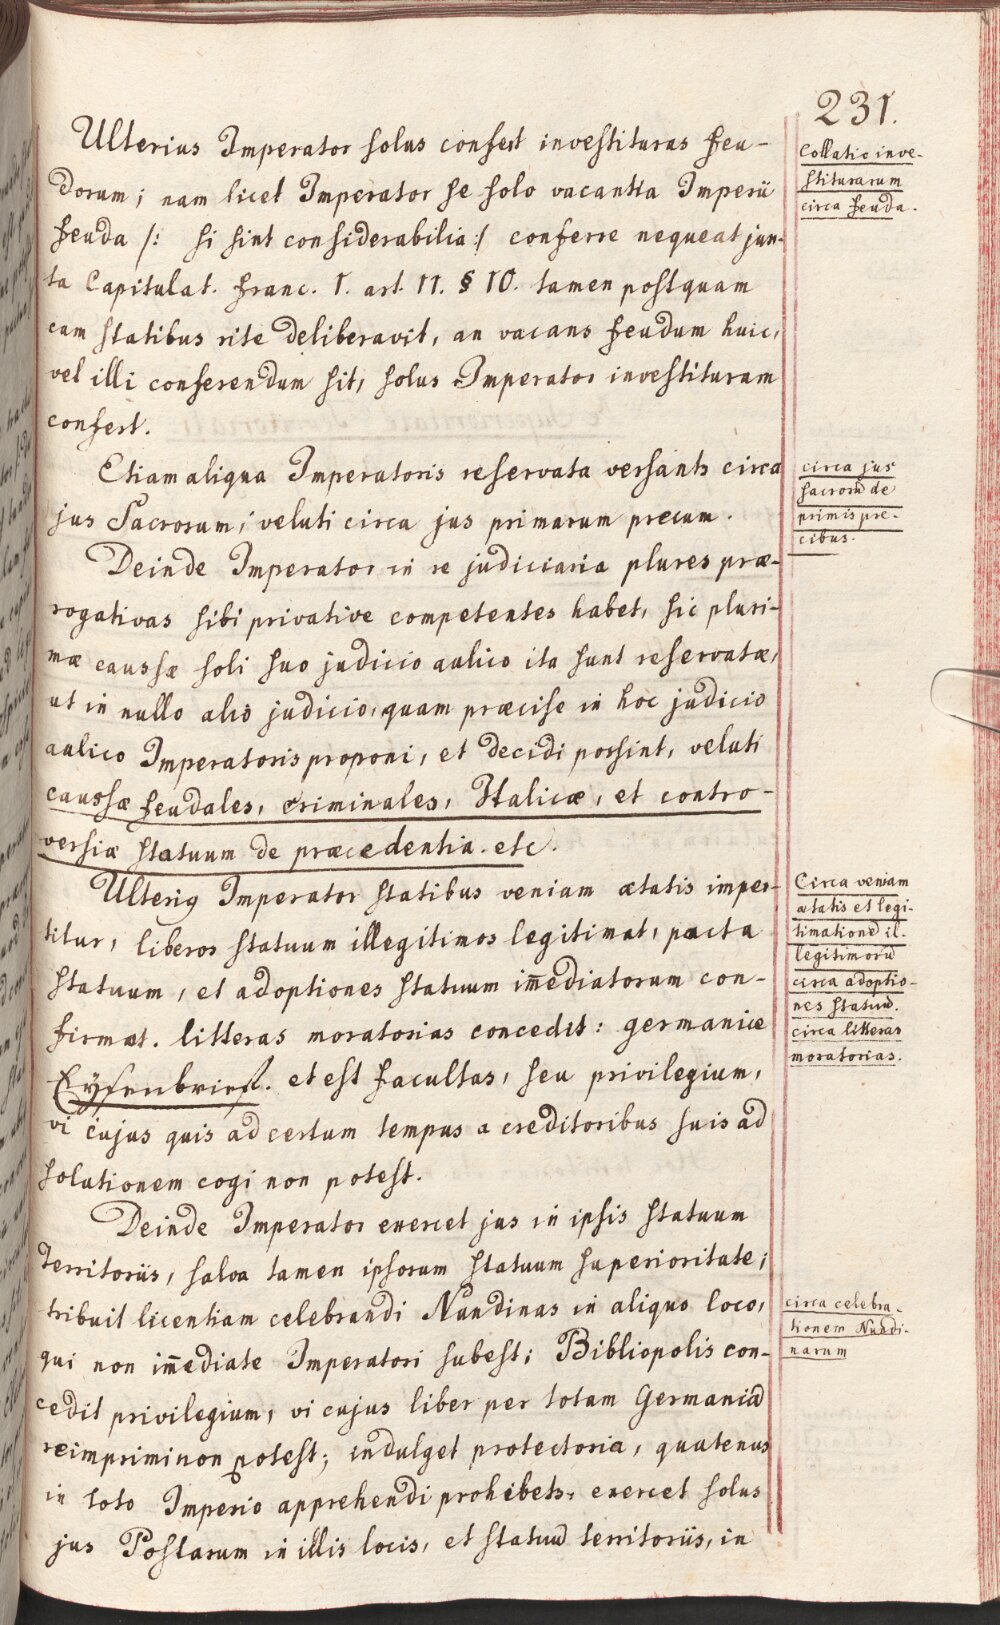 231.
Ulterius Imperator solus confert investituras feu-
dorum; nam licet Imperator se solo vacantia Imperii
feuda /: si sint considerabilia :/ conferre nequeat jux-
ta Capitulat. Franc. 1. art. 11. § 10. tamen postquam
cum statibus rite deliberavit, an vacans feudum huic,
vel illi conferendum sit, solus Imperator investituram
confert.
Collatio inve-
stiturarum
circa feuda.
Etiam aliqua Imperatoris reservata versants circa
jus Sacrorum, veluti circa jus primarum precum.
circa jus
sacroru de
primis pre-
cibus.
Deinde Imperator in re judiciaria plures præ-
rogativas sibi privative competentes habet, sic pluri-
mæ caussæ soli suo judicio aulico ita sunt reservatæ,
ut in nullo alio judicio, quam præcise in hoc judicio
aulico Imperatoris proponi, et decidi possint, veluti
caussæ feudales, criminales, Italicæ, et contro-
versiæ statuum de præcedentia. etc.
Ulterig Imperator statibus veniam ætatis imper-
titur, liberos statuum illegitimos legitimat, pacta
statuum, et adoptiones statuum im̄ediatorum con-
firmat. litteras moratorias concedit: germanice
Eysenbrief. et est facultas, seu privilegium,
vi cujus quis ad certum tempus a creditoribus suis ad
solutionem cogi non potest.
Circa veniam
ætatis et legi-
timatione il-
legitimoru
circa adoptio-
nes statuu.
circa litteras
moratorias.
Deinde Imperator exercet jus in ipsis statuum
Territoriis, salva tamen ipsorum statuum superioritate;
tribuit licentiam celebrandi Nundinas in aliquo loco,
qui non im̄ediate Imperatori subest; Bibliopolis con-
cedit privilegium, vi cujus liber per totam Germaniā
reimprimi non potest; indulget protectoria, quatenus
in toto Imperio apprehendi prohibets, exercet solus
jus Postarum in illis locis, et statuū territoriis, in
circa celebra-
tionem Nundi-
narum